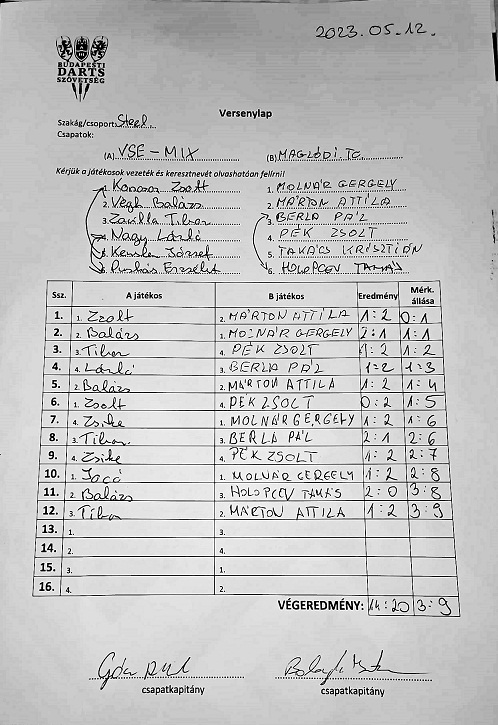 2023.05.12.
BUDAPESTI
DARTS
SZÖVETSÉG
Versenylap
Szakág/csoport: Steel
Csapatok:
(A) VSE-MIX (B) MAGLÓDI TC
Kérjük a játékosok vezeték és keresztnevét olvashatóan felírni!
1. Zsolt 1. MOLNÁR GERGELY
2. Végh Balázs 2. MÁRTON ATTILA
3. Zavilla Tibor 3. BERLA PÁL
4. Nagy László 4. PÉK ZSOLT
5. József 5. TAKÁCS KRISZTIÁN
6. Puskás Erzsébet 6. HOLOPCEV TAMÁS
Ssz. A játékos B játékos Eredmény Mérk. állása
1. 1. Zsolt 2. MÁRTON ATTILA 1:2 0:1
2. 2. Balázs 1. MOLNÁR GERGELY 2:1 1:1
3. 3. Tibor 4. PÉK ZSOLT 1:2 1:2
4. 4. László 3. BERLA PÁL 1:2 1:3
5. 2. Balázs 2. MÁRTON ATTILA 1:2 1:4
6. 1. Zsolt 4. PÉK ZSOLT 0:2 1:5
7. 4. Zsike 1. MOLNÁR GERGELY 1:2 1:6
8. 3. Tibor 3. BERLA PÁL 2:1 2:6
9. 4. Zsike 4. PÉK ZSOLT 1:2 2:7
10. 1. Jocó 1. MOLNÁR GERGELY 1:2 2:8
11. 2. Balázs 3. HOLOPCEV TAMÁS 2:0 3:8
12. 3. Tibor 2. MÁRTON ATTILA 1:2 3:9
13. 1. 3.
14. 2. 4.
15. 3. 1.
16. 4. 2.
VÉGEREDMÉNY: 14:20 3:9
csapatkapitány csapatkapitány